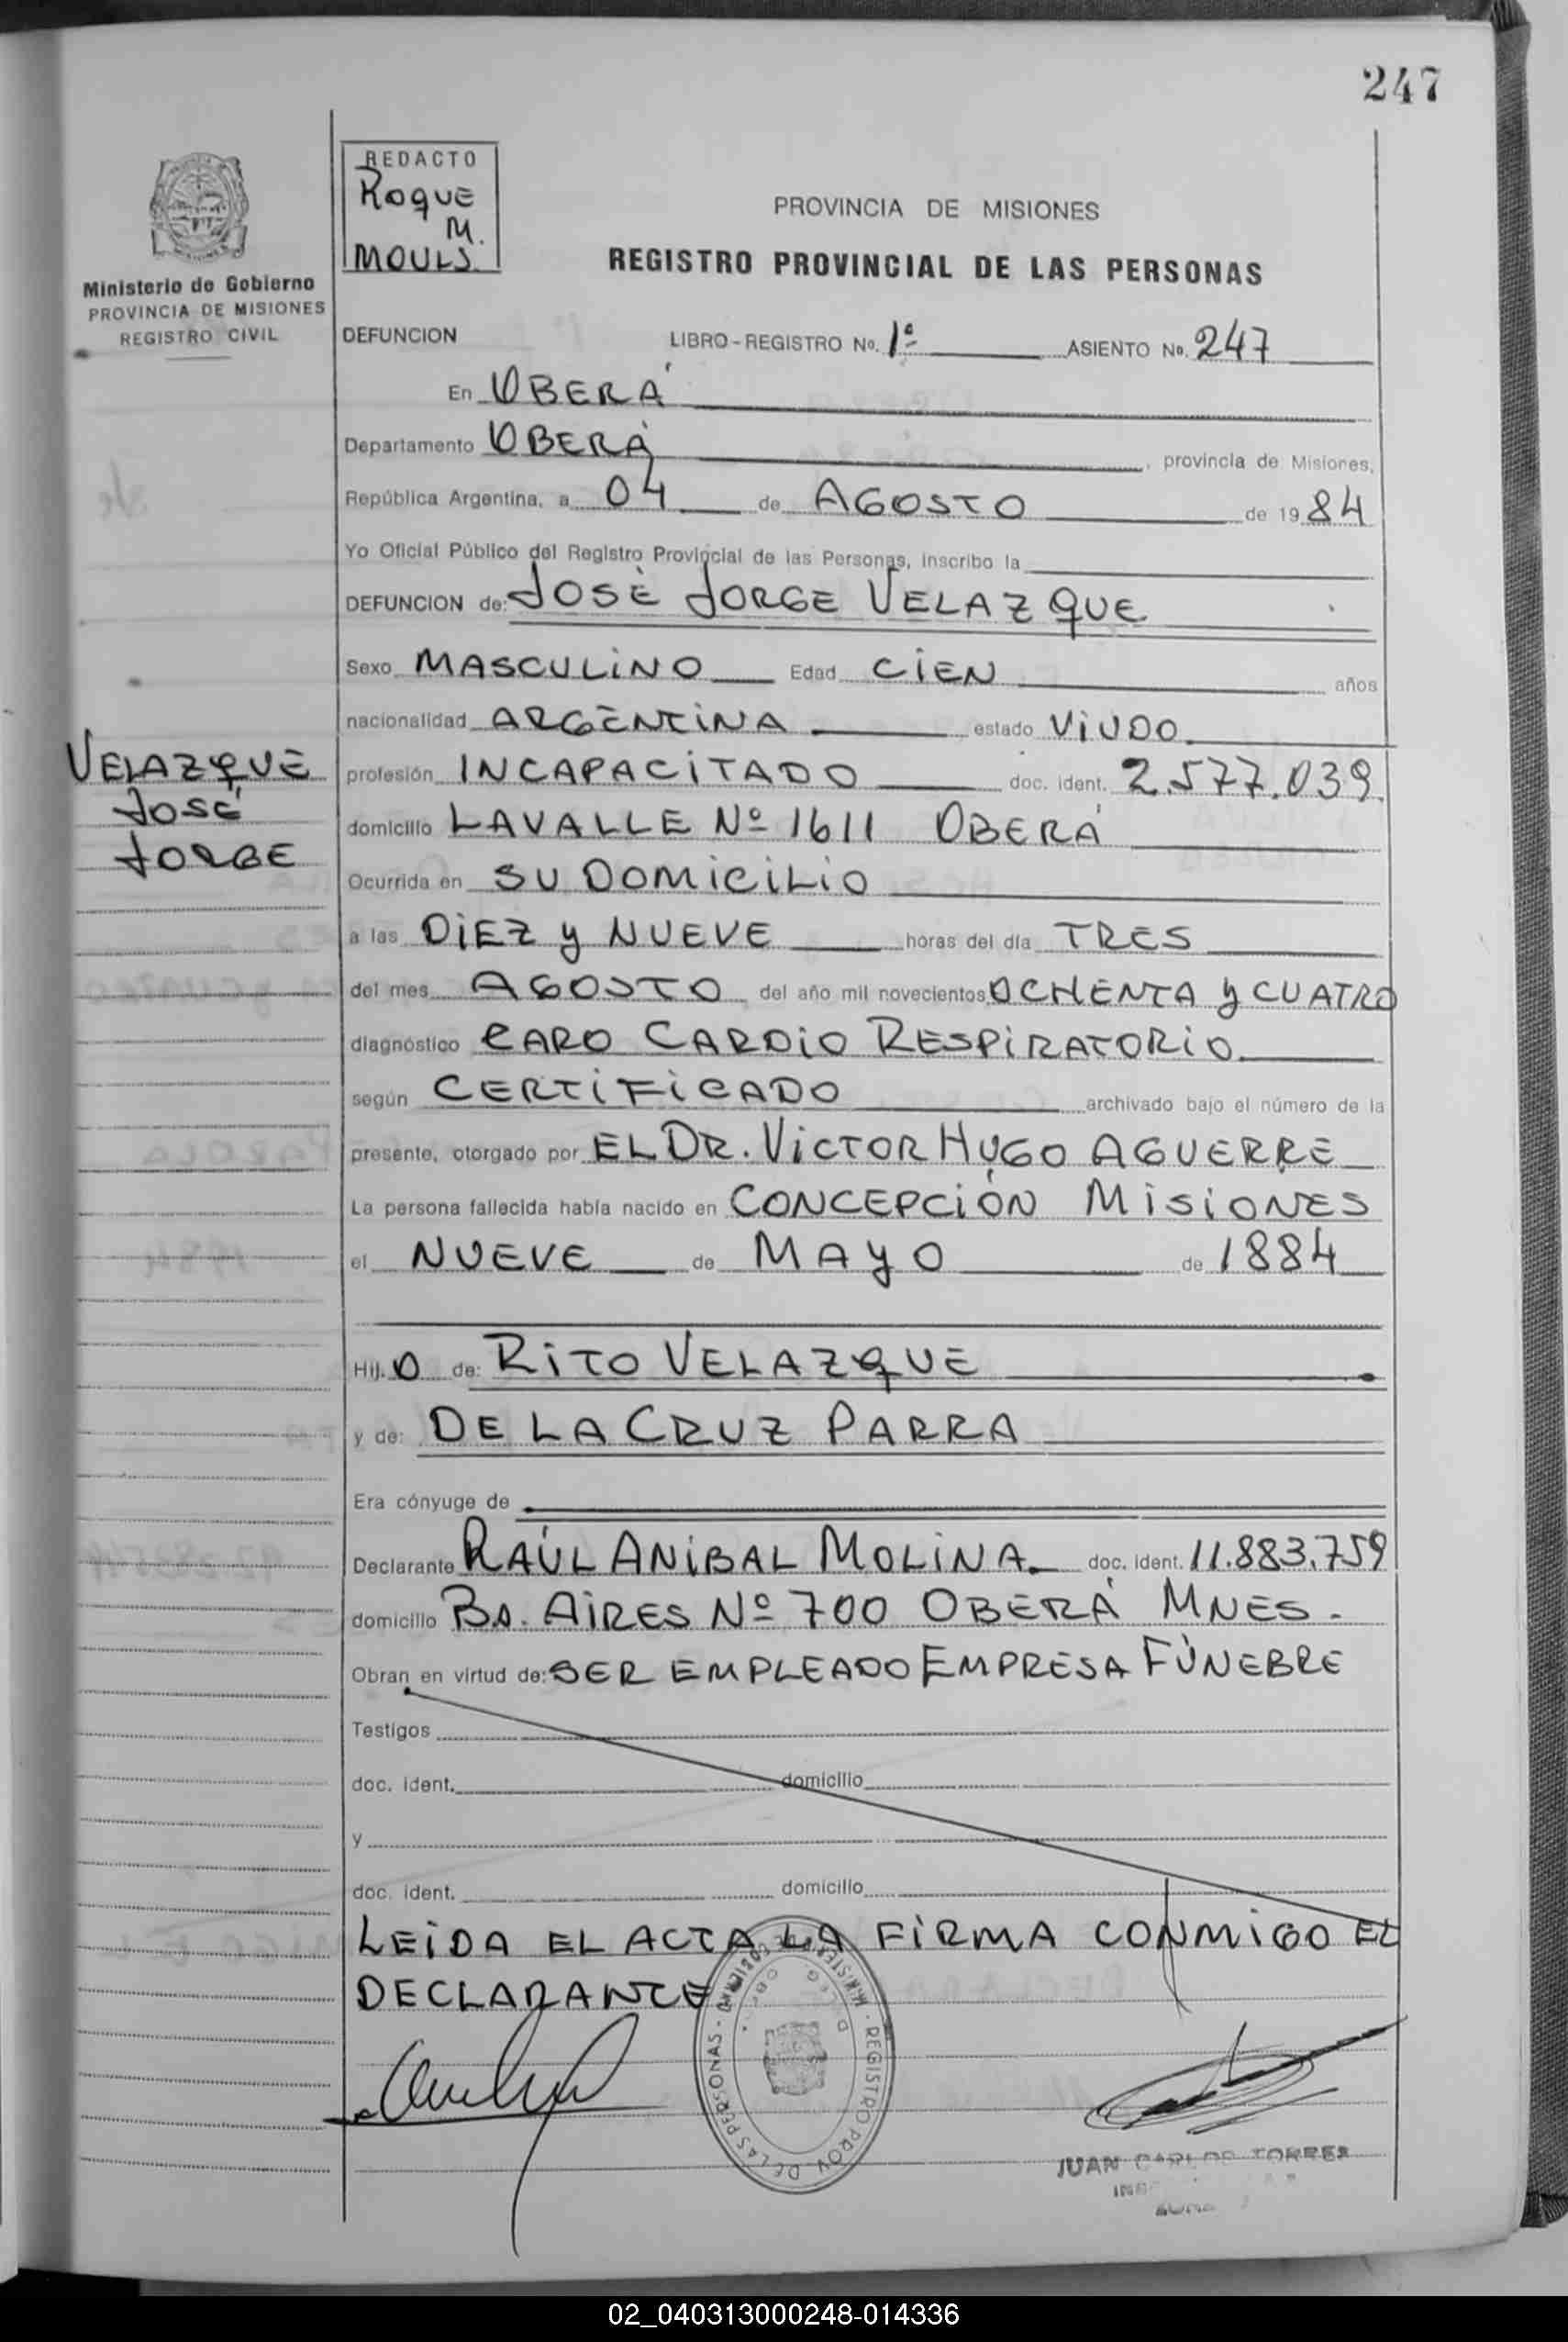 247
REDACTO
Roque
M.
MOULS.
Ministerio de Gobierno
PROVINCIA DE MISIONES
REGISTRO CIVIL
PROVINCIA DE MISIONES
REGISTRO PROVINCIAL DE LAS PERSONAS
DEFUNCION LIBRO-REGISTRO No. 1º ASIENTO No. 247
En OBERÁ
Departamento OBERÁ, provincia de Misiones,
República Argentina, a 04 de AGOSTO de 1984
Yo Oficial Público del Registro Provincial de las Personas, inscribo la
DEFUNCION de: JOSÉ JORGE VELAZQUE
Sexo MASCULINO Edad CIEN años
nacionalidad ARGENTINA estado VIUDO
VELAZQUE
JOSÉ
JORGE
profesión INCAPACITADO doc. ident. 2.577.039
domicilio LAVALLE Nº 1611 OBERÁ
Ocurrida en SU DOMICILIO
a las DIEZ y NUEVE horas del día TRES
del mes AGOSTO del año mil novecientos OCHENTA y CUATRO
diagnóstico PARO CARDIO RESPIRATORIO
según CERTIFICADO archivado bajo el número de la
presente, otorgado por EL DR. VICTOR HUGO AGUERRE
La persona fallecida había nacido en CONCEPCIÓN MISIONES
el NUEVE de MAYO de 1884
Hij.O de: RITO VELAZQUE
y de: DE LA CRUZ PARRA
Era cónyuge de
Declarante RAÚL ANIBAL MOLINA doc. ident. 11.883.759
domicilio Bs. AIRES Nº 700 OBERÁ MNES.
Obran en virtud de: SER EMPLEADO EMPRESA FÚNEBRE
Testigos
doc. ident. domicilio
y
doc. ident. domicilio
LEIDA EL ACTA LA FIRMA CONMIGO EL
DECLARANTE
REGISTRO PROV. DE LAS PERSONAS
JUAN CARLOS TORRES
02_040313000248-014336